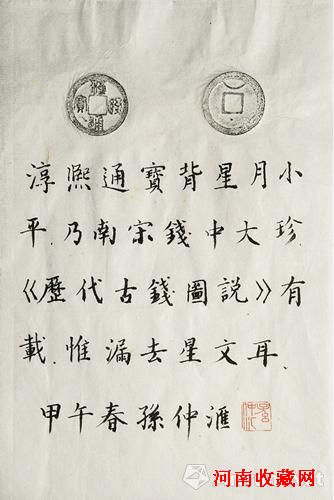 淳熙通寶
淳熙通寶背星月小
平.乃南宋錢中大珍.
《歷代古錢圖說》有
載.惟漏去星文耳.
甲午春孫仲滙
河南收藏网